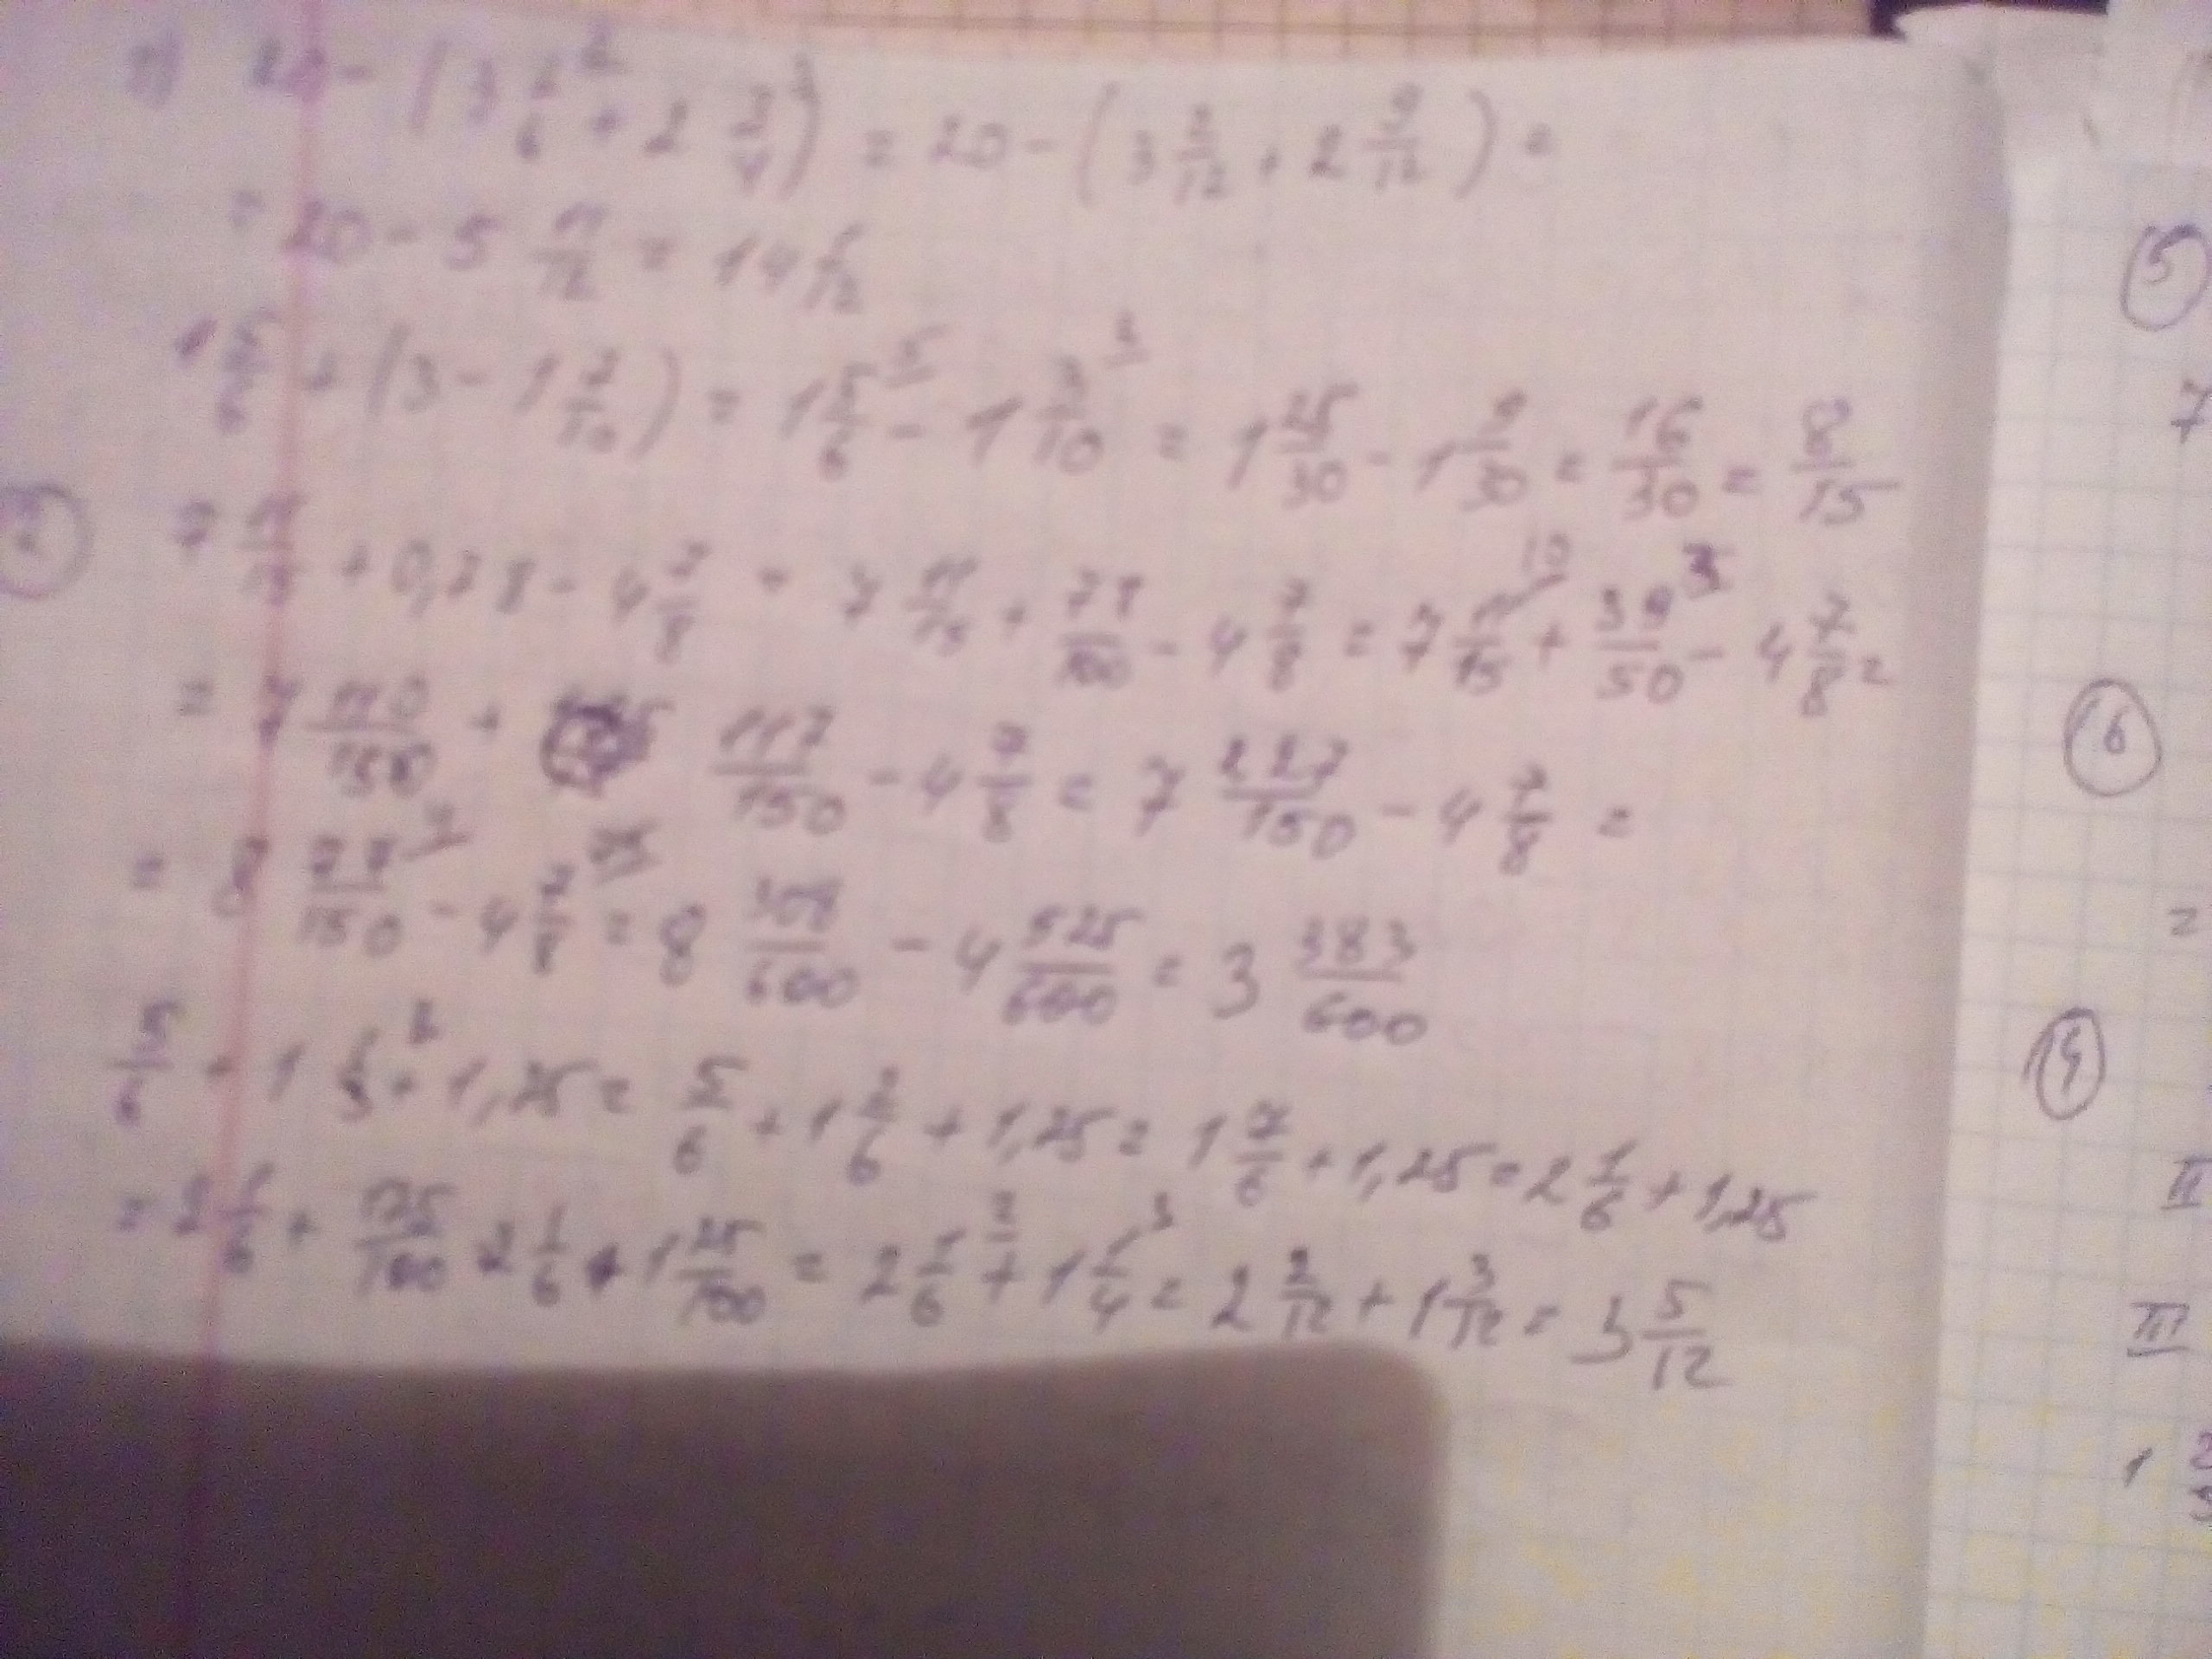 20 - (3 1/6 + 2 3/4) = 20 - (3 2/12 + 2 9/12) =
= 20 - 5 11/12 = 14 1/12
1 5/6 + (3 - 1 7/10) = 1 5/6 - 1 3/10 = 1 25/30 - 1 9/30 = 16/30 = 8/15
7 11/15 + 0,78 - 4 7/8 = 7 11/15 + 78/100 - 4 7/8 = 7 11/15 + 39/50 - 4 7/8 =
= 7 110/150 + 117/150 - 4 7/8 = 7 227/150 - 4 7/8 =
= 8 77/150 - 4 7/8 = 8 308/600 - 4 525/600 = 3 383/600
5/6 + 1 1/3 + 1,25 = 5/6 + 1 2/6 + 1,25 = 1 7/6 + 1,25 = 2 1/6 + 1,25
= 2 1/6 + 125/100 2 1/6 + 1 25/100 = 2 1/6 + 1 1/4 = 2 2/12 + 1 3/12 = 3 5/12
5
7
16
=
II
III
1 2/3